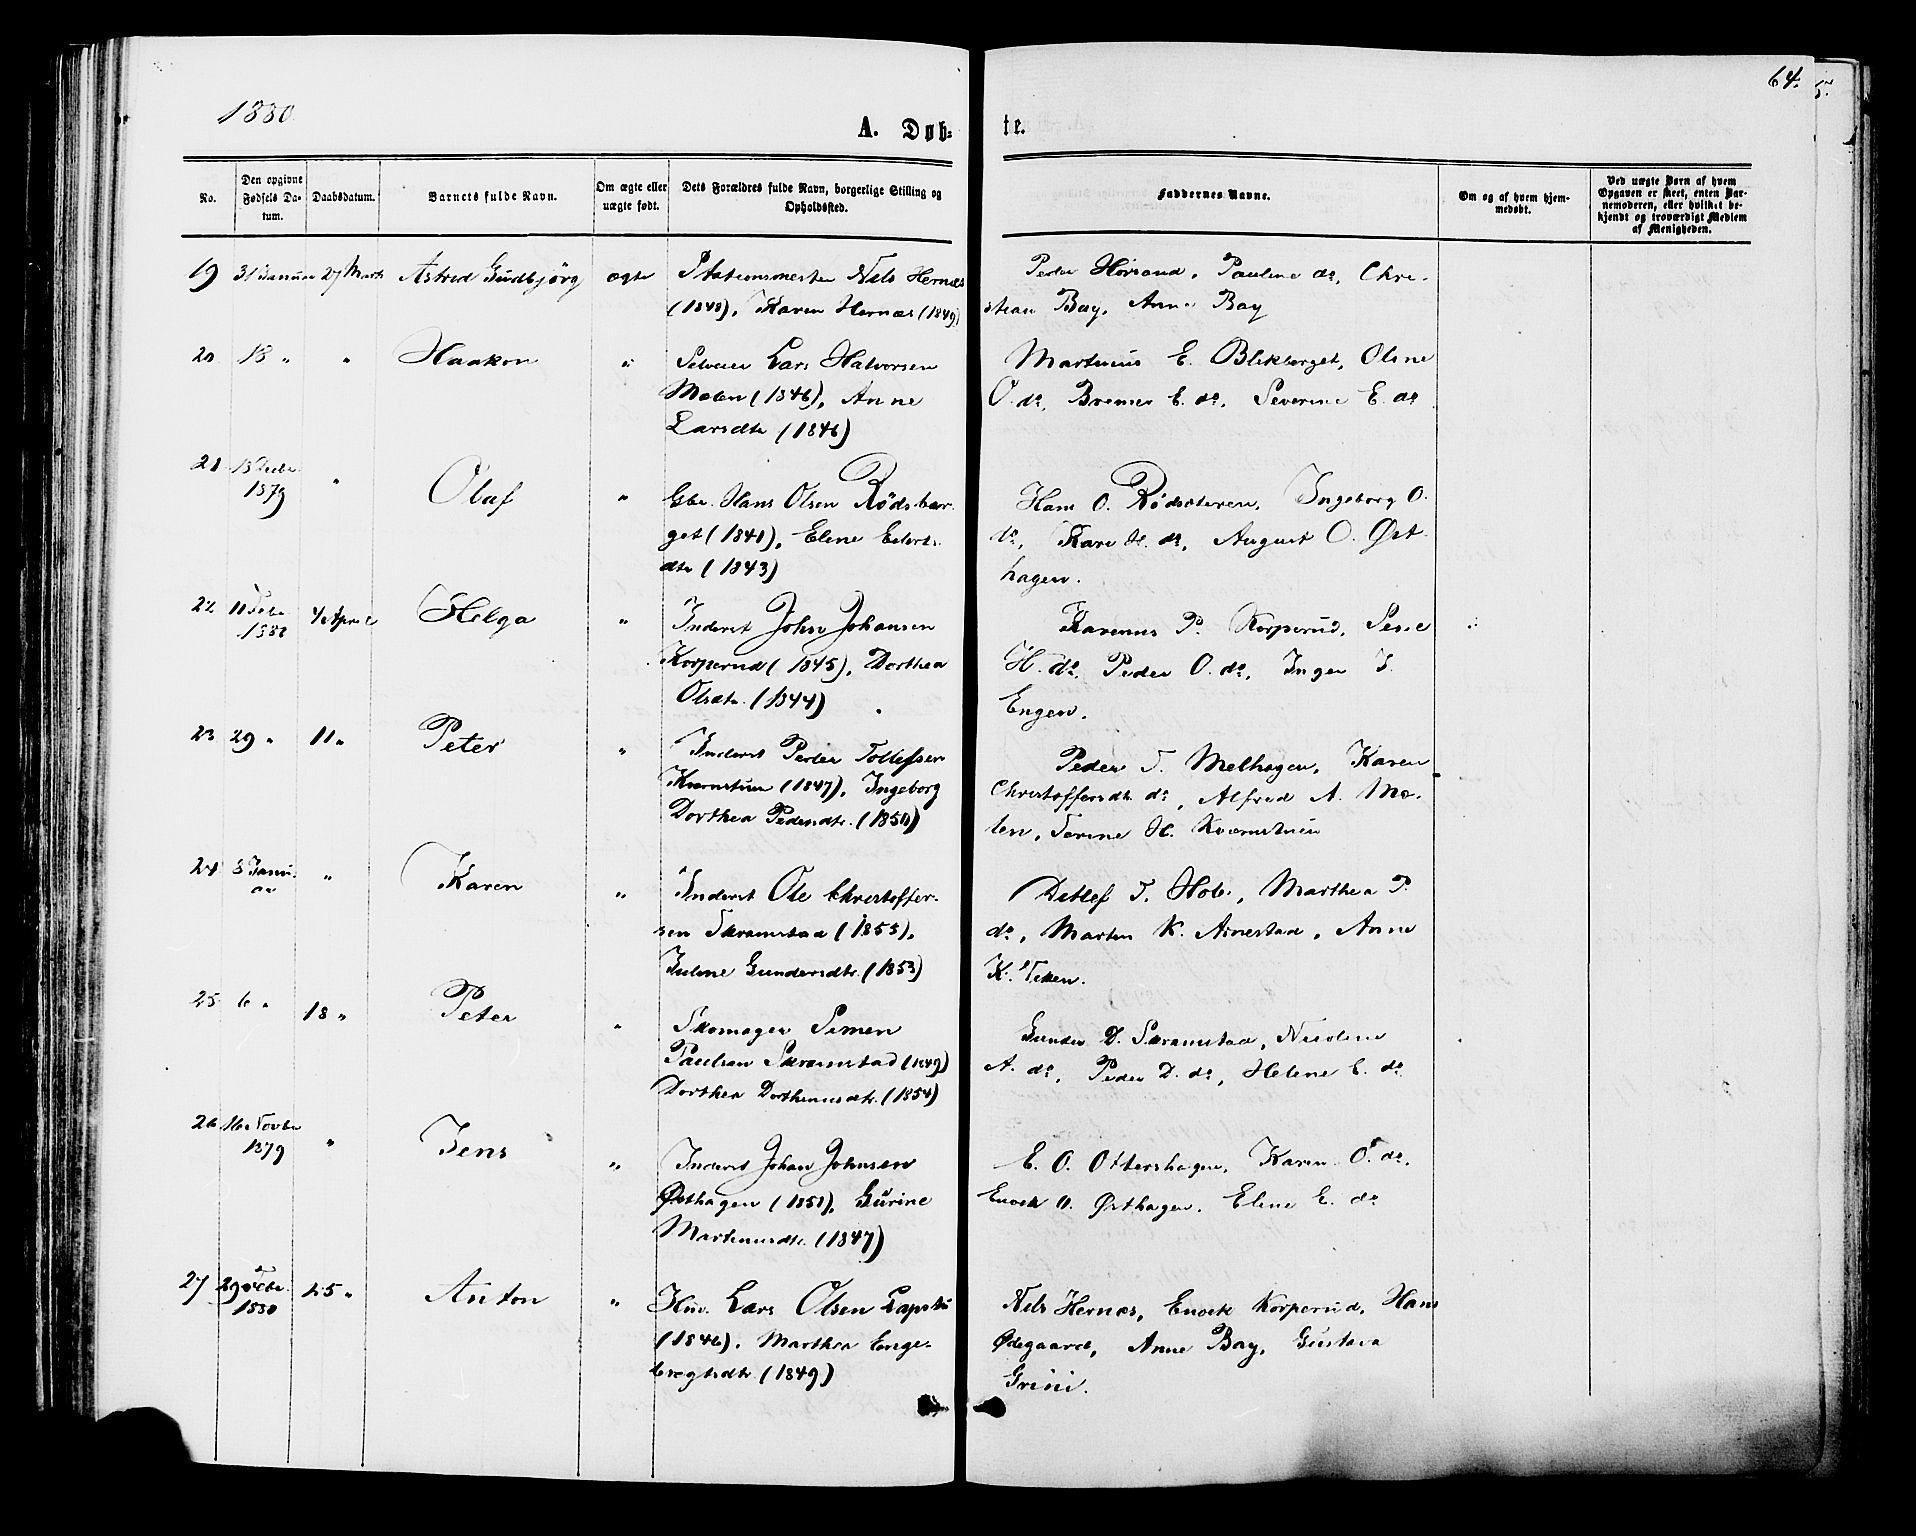 64.
1880
A. Døb-
te.
No.
Den opgivne Fødsels Datum.
Daabsdatum.
Barnets fulde Navn.
Om ægte eller uægte født.
Dets Forældres fulde Navn, borgerlige Stilling og Opholdssted.
Faddernes Navne.
Om og af hvem hjemmedøbt.
Ved uægte Børn af hvem Opgaven er skeet, enten Barnemoderen, eller hvilket bekjendt og troværdigt Medlem af Menigheden.
19 31 Januar 27 Marts Astrid Gudbjörg ægte Stationsmester Nils Hernæs
(1848), Karen Hernæs (1849)
Peder Hörsand, Pauline do, Chri-
stian Bay, Anne Bay
20 18 " " Haakon " Selveier Lars Halvorsen
Molen (1846), Anne
Larsdtr (1846)
Martinus E. Blikberget, Oline
O. do, Bremer E. do, Severine E. do
21 Decbr 1879 " Olaf " Gbr. Hans Olsen Rödsber-
get (1841), Eline Eilerts-
dtr (1843)
Hans O. Rødsæteren, Ingeborg O.
do, Kari H. do, August O. Øst-
hagen.
22 11 Febr 1880 4 April Helga " Inderst John Johansen
Korperud (1845), Dorthea
Olsdtr. (1844)
Karenus P. Korperud,
H. do, Peder O. do, Inger J.
Engen.
23 29 " 11 " Peter " Inderst Peder Tollefsen
Kværnstuen (1847), Ingeborg
Dorthea Pedersdtr. (1850)
Peder T. Melhagen, Karen
Christoffersdtr. do, Alfred A. Mo-
len, Terine H. Kværnstuen
24 8 Janu-
ar " Karen " Inderst Ole Christoffer-
sen Skramstad (1855),
Juline Gundersdtr. (1853)
Detlef T. Hob, Marthea P.
do, Martin K. Arnestad, Anne
K.
25 6 " 18 " Peter " Skomager Simen
Paulsen Skramstad (1849)
Dorthea Dortheusdtr. (1854)
Gunder D. Skramstad, Nicoline
A. do, Peder D. do, Helene E. do
26 16 Novbr 1879 " Jens " Inderst Johan Johnsen
Østhagen (1851), Gurine
Martinusdtr. (1847)
E. O. Ottershagen, Karen O. do,
Enock O. Østhagen, Eline E. do
27 29 Febr. 1880 25 " Anton " Huv. Lars Olsen Lapstu
(1846), Marthea Enge-
bregtsdtr. (1849)
Nils Hernæs, Enock Korperud, Hans
Ødegaard, Anne Bay, Gustava
Grini.